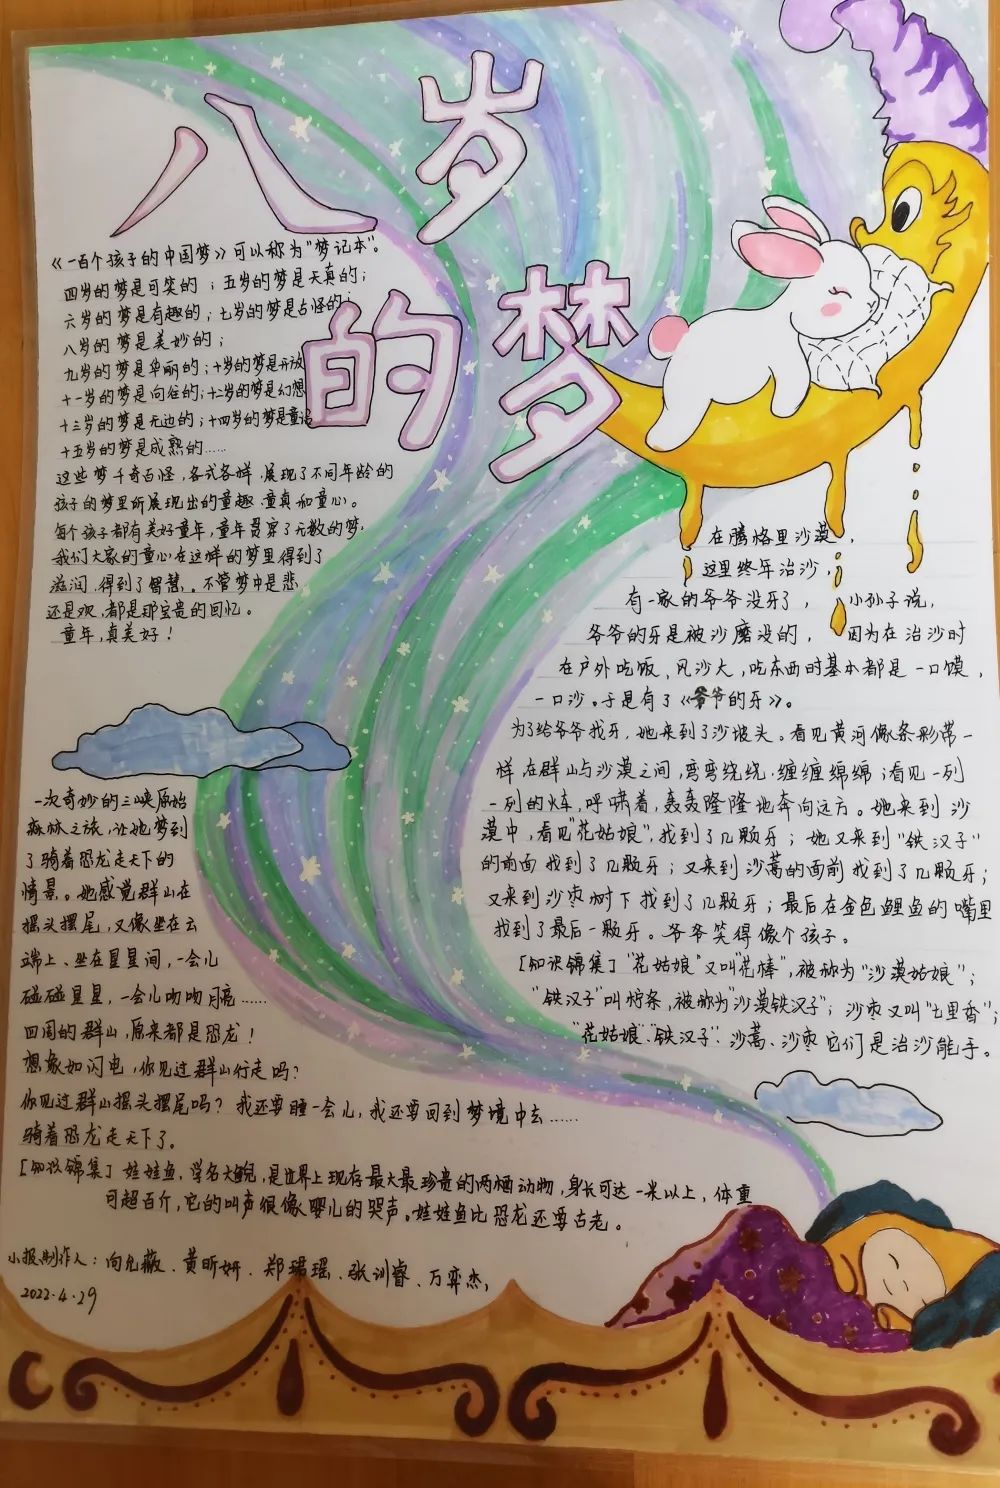 八岁的梦
《一百个孩子的中国梦》可以称为"梦记本"。
四岁的梦是可笑的；五岁的梦是天真的；
六岁的梦是有趣的；七岁的梦是古怪的；
八岁的梦是美妙的；
九岁的梦是华丽的；十岁的梦是开放
十一岁的梦是向往的；十二岁的梦是幻想
十三岁的梦是无边的；十四岁的梦是童话
十五岁的梦是成熟的……
这些梦千奇百怪，各式各样，展现了不同年龄的
孩子的梦里所展现出的童趣、童真和童心。
每个孩子都有美好童年，童年贯穿了无数的梦，
我们大家的童心在这样的梦里得到了
滋润，得到了智慧。不管梦中是悲，
还是欢，都是那宝贵的回忆。
童年，真美好！
在腾格里沙漠，
这里终年治沙，
有一家的爷爷没牙了，小孙子说，
爷爷的牙是被沙磨没的，因为在治沙时
在户外吃饭，风沙大，吃东西时基本都是一口馍，
一口沙。于是有了《爷爷的牙》。
为了给爷爷找牙，她来到了沙坡头。看见黄河像条彩带一
样在群山与沙漠之间，弯弯绕绕，缠缠绵绵；看见一列
一列的火车，呼啸着，轰轰隆隆地奔向远方。她来到沙
漠中，看见"花姑娘"，找到了几颗牙；她又来到"铁汉子"
的前面找到了几颗牙；又来到沙蒿的面前找到了几颗牙；
又来到沙枣树下找到了几颗牙；最后在金色鲤鱼的嘴里
找到了最后一颗牙。爷爷笑得像个孩子。
[知识锦集]"花姑娘"又叫"花棒"，被称为"沙漠姑娘"；
"铁汉子"叫柠条，被称为"沙漠铁汉子"；沙枣又叫"七里香"；
"花姑娘"、"铁汉子"、沙蒿、沙枣它们是治沙能手。
一次奇妙的三峡原始
森林之旅，让她梦到
了骑着恐龙走天下的
情景。她感觉群山在
摇头摆尾，又像坐在云
端上、坐在星星间，一会儿
碰碰星星，一会儿吻吻月亮……
四周的群山，原来都是恐龙！
想象如闪电，你见过群山行走吗？
你见过群山摇头摆尾吗？我还要睡一会儿，我还要回到梦境中去……
骑着恐龙走天下了。
[知识锦集]娃娃鱼，学名大鲵，是世界上现存最大最珍贵的两栖动物，身长可达一米以上，体重
可超百斤，它的叫声很像婴儿的哭声。娃娃鱼比恐龙还要古老。
小报制作人：向允薇、黄昕妍、郑瑞瑶、张训睿、万弈杰，
2022.4.29